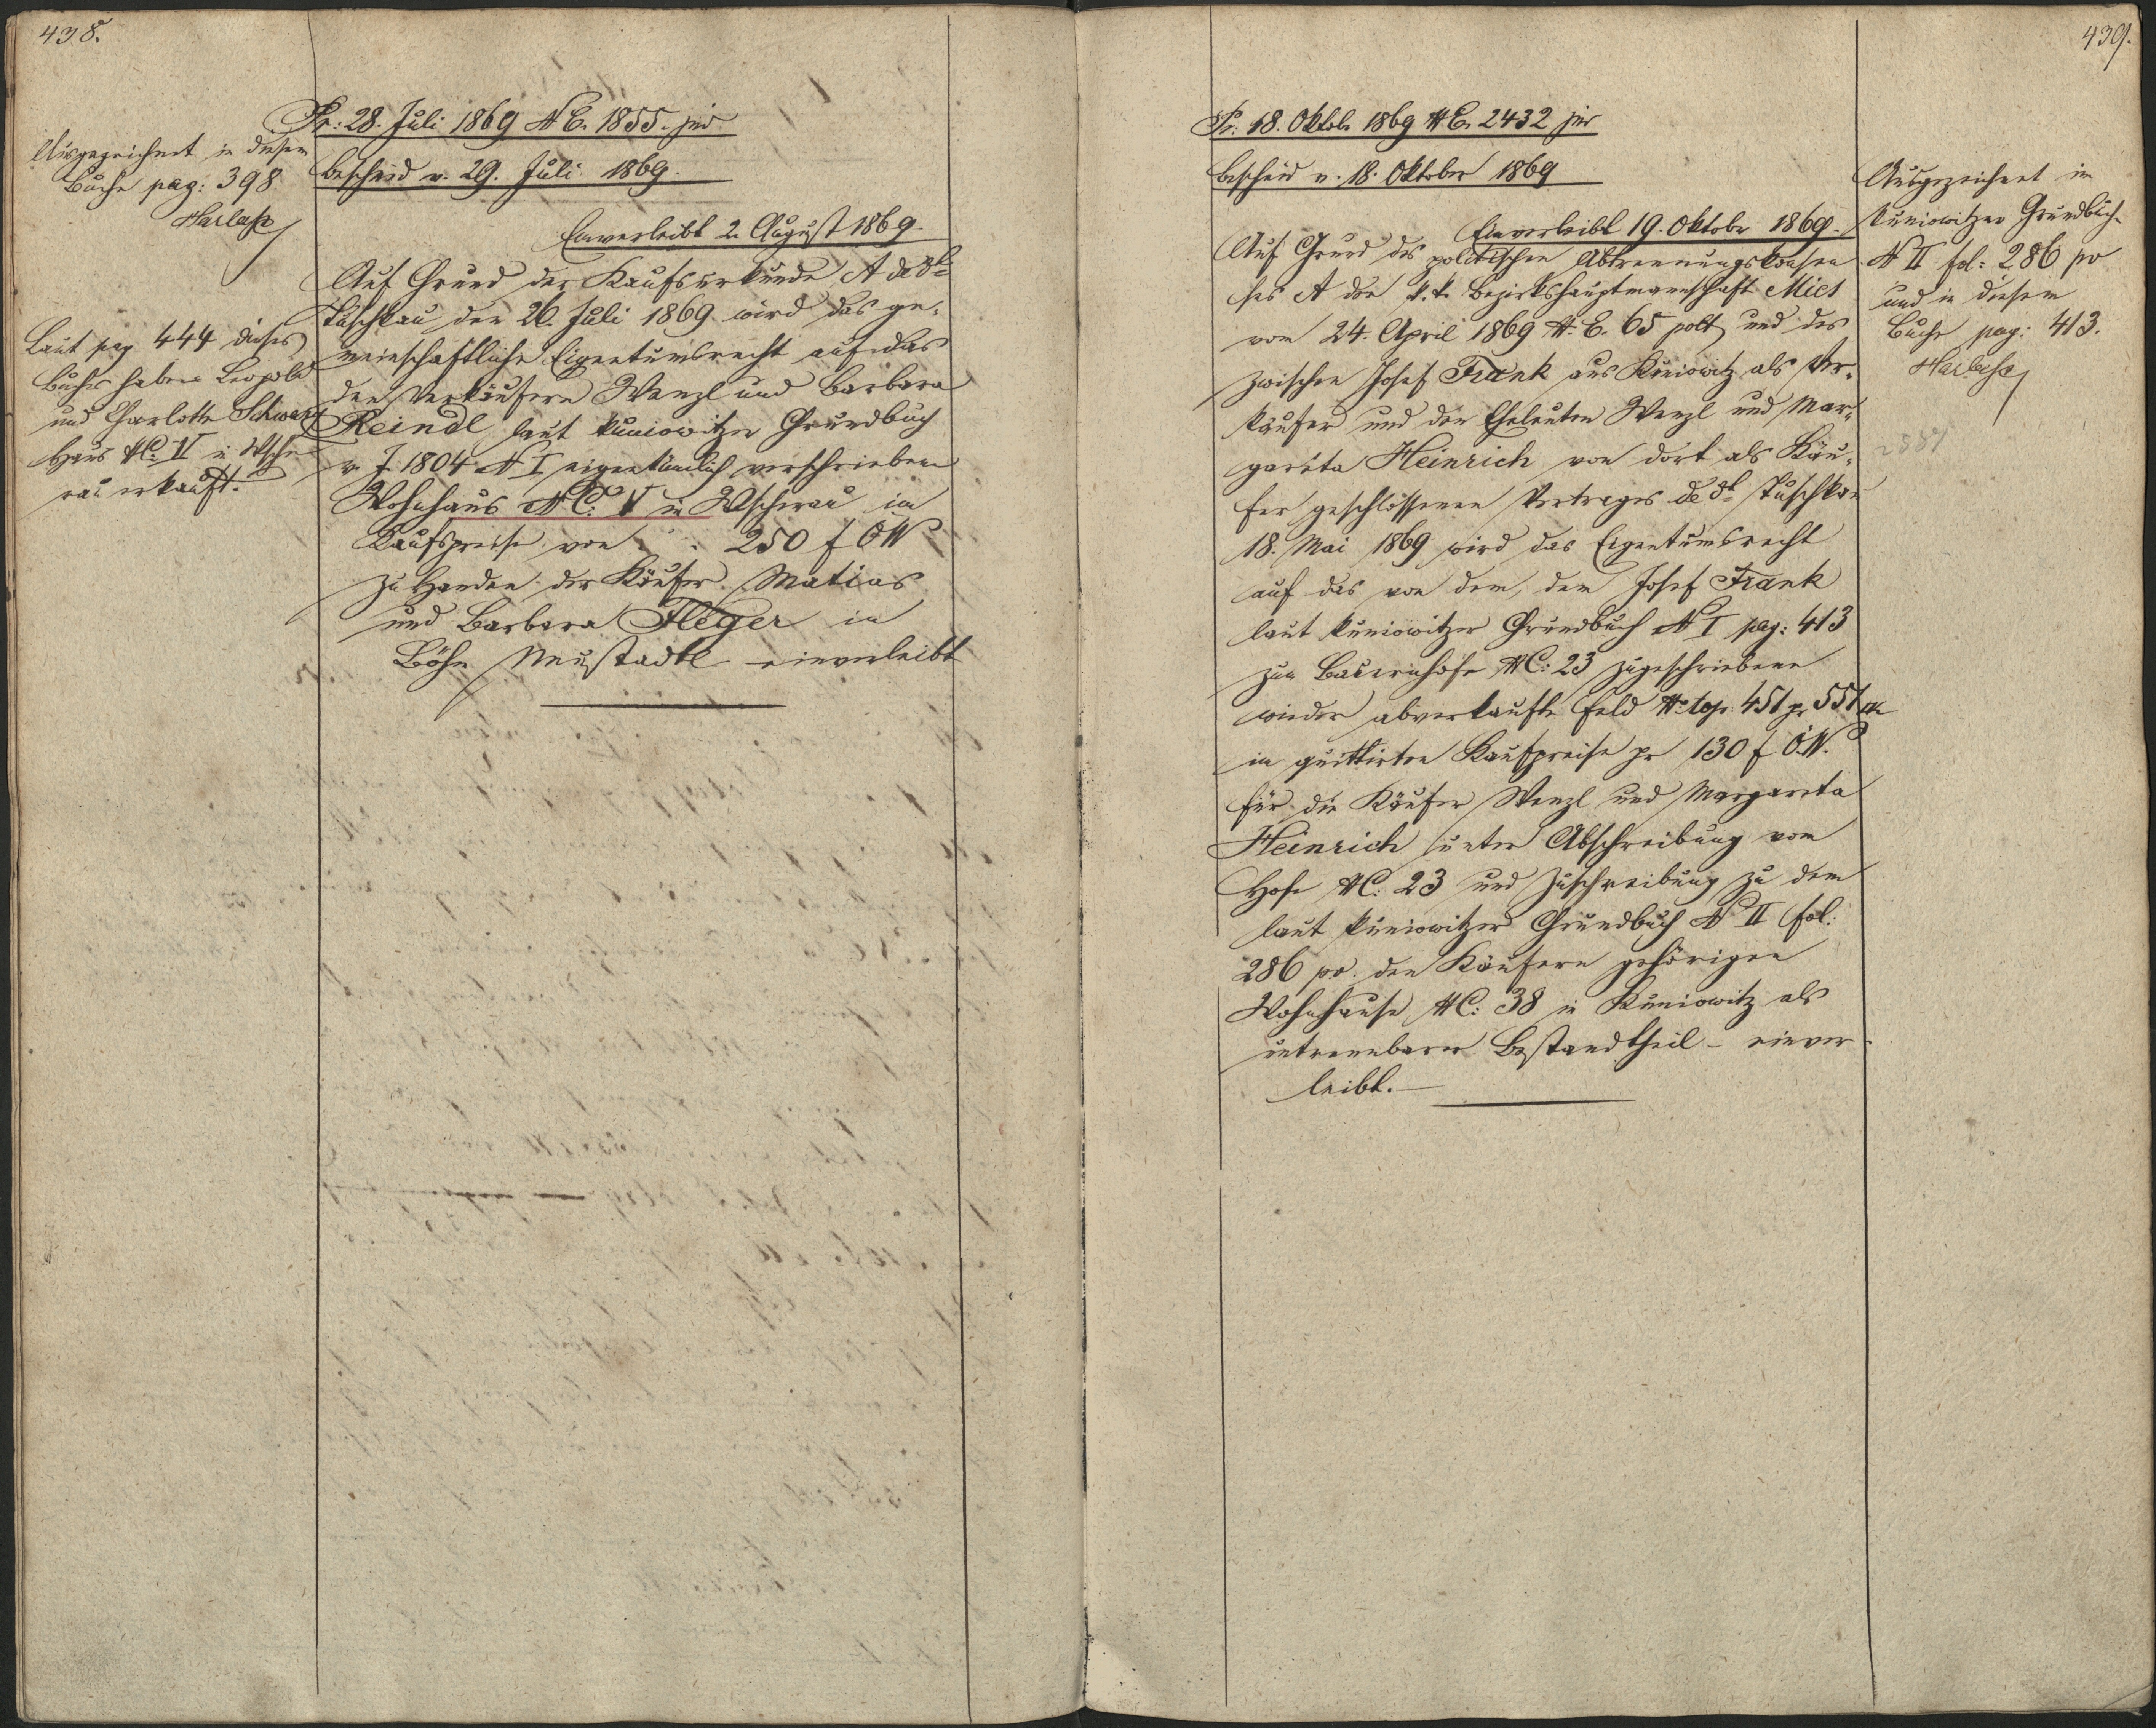 438.
Ausgezeichnet in diesem
Buche pag: 398.
Harlaß
Laut pag 444 dieses
Buches haben Leopold
und Charlotte Schwarz
Haus NC: V in Wsche
rau erkauft.
Pr: 28. Juli 1869 N E. 1855. jud
Bescheid v. 29. Juli 1869.
Einverleibt 2. August 1869.
Auf Grund der Kaufsurkunde A de dto
Tuschkau den 26. Juli 1869 wird das ge-
meinschaftliche Eigentumsrecht auf das
den Verkäufern Wenzl und Barbara
Reindl laut kuniowitzer Grundbuch
v. J. 1804 N I eigentümlich verschriebene
Wohnhaus N C: V in Wscherau im
Kaufspreise von . . 250 f ÖW
zu Handen der Käufer Matias
und Barbara Fleger in
Böhm Neustadtl einverleibt
439.
Pr: 18. Oktob. 1869 N E. 2432 jud
Bescheid v. 18. Oktober 1869
Einverleibt 19. Oktober 1869.
Auf Grund des politischen Abtrennungskonsen
ses A der k. k. Bezirkshauptmannschaft Mies
vom 24. April 1869 N. E. 65 polt und des
zwischen Josef Frank aus Kuniowitz als Ver-
käufer und den Eheleuten Wenzl und Mar-
gareta Heinrich von dort als Käu-
fer geschlossenen Vertrages de dto Tuschkau
18. Mai 1869 wird das Eigentumsrecht
auf das von dem, dem Josef Frank
laut kuniowitzer Grundbuch N I pag: 413
zum Bauernhofe NC: 23 zugeschriebene
wieder abverkaufte Feld No top. 451 pr 551
im quittirten Kaufpreise pr 130 f Ö.W.
für die Käufer Wenzl und Margareta
Heinrich unter Abschreibung vom
Hofe NC: 23 und Zuschreibung zu dem
laut kuniowitzer Grundbuch N II fol:
286 po. den Käufern gehörigen
Wohnhause NC: 38 in Kuniowitz als
untrennbarer Bestandtheil – einver-
leibt.
Ausgezeichnet im
Kuniowitzer Grundbuch
N II fol: 286 po
und in diesem
Buche pag: 413.
Harlaß